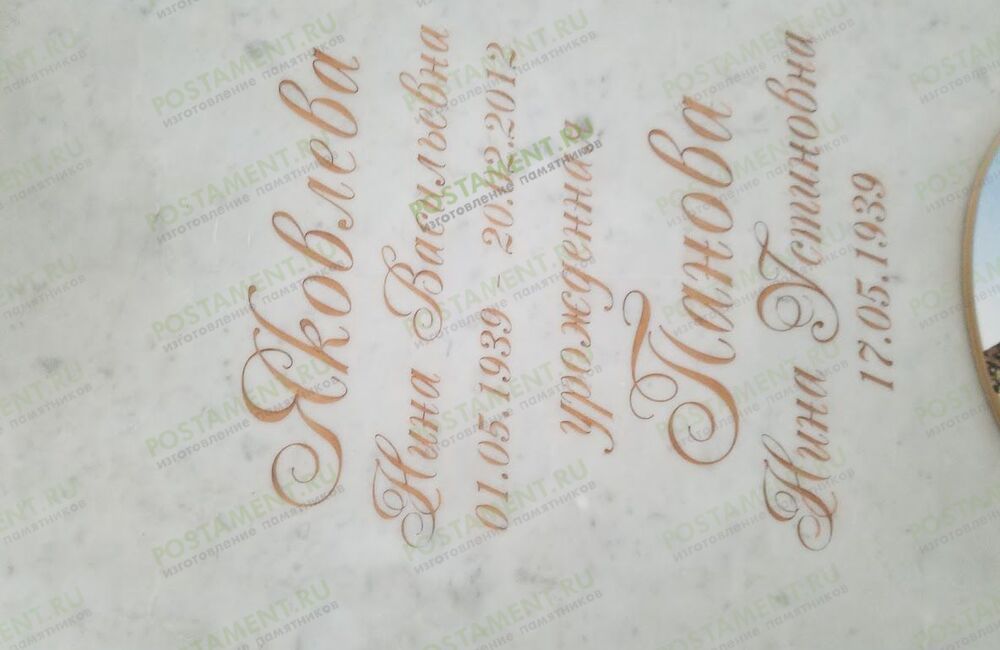 Яковлева
Нина Васильевна
01.05.1939 - 20.02.2012
урожденная
Панова
Нина Устиновна
17.05.1939
POSTAMENT.RU
изготовление памятников